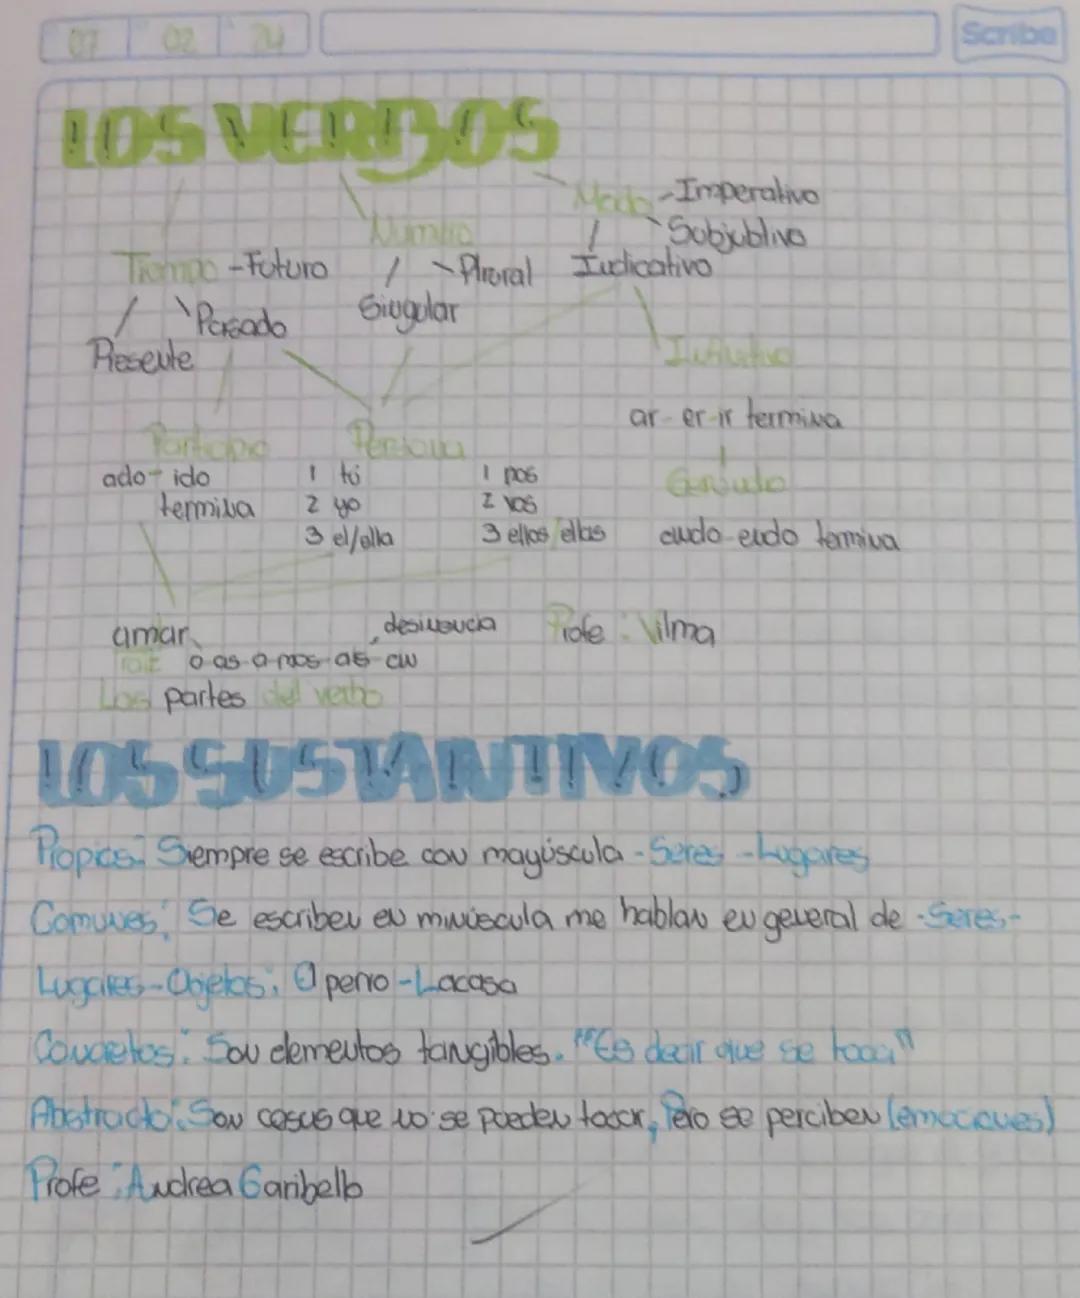 07 02 24
Scribe
LOS VERBOS
Modo - Imperativo
Número - Subjubtivo
Tiempo - Futuro - Plural Indicativo
Pasado Singular
Presente Infinitivo
ar - er - ir termina
Participio Persona
ado - ido 1 tú 1 nos Gerundio
termina 2 yo 2 vos
3 el/ella 3 ellos/ellas ando - endo termina
amar desinencia Profe : Vilma
raíz o - as - a - nos - ais - an
Las partes del verbo
LOS SUSTANTIVOS
Propios: Siempre se escribe con mayúscula - Seres - Lugares
Comunes: Se escriben en minúscula me hablan en general de - Seres -
Lugares - Objetos: El perro - La casa
Concretos: Son elementos tangibles. "Es decir que se toca"
Abstracto: Son cosas que no se pueden tocar, Pero se perciben (emociones)
Profe : Andrea Garibello